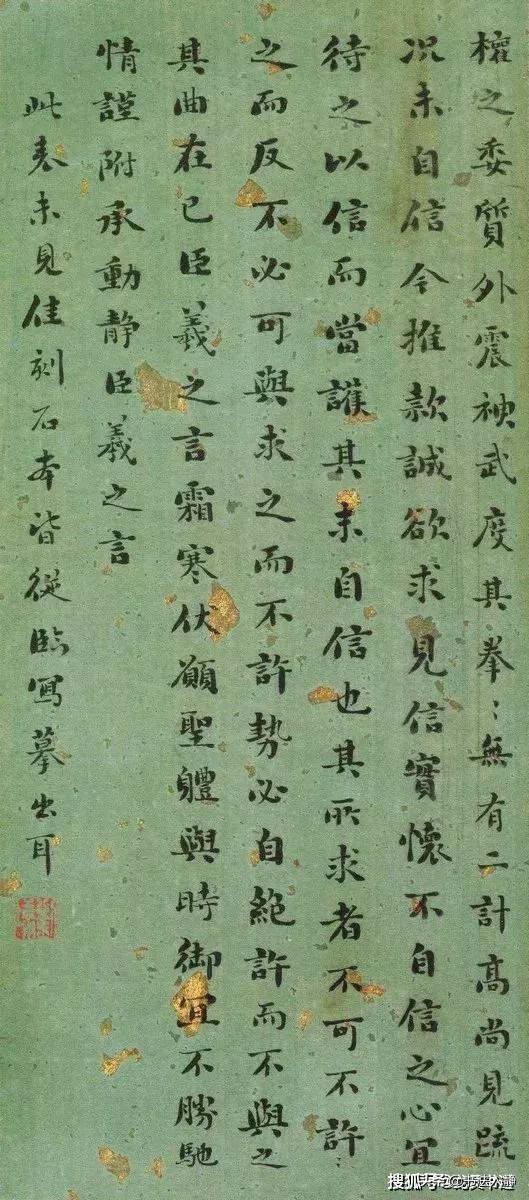 權之委質外震神武度其拳〻無有二計高尚見疏
况未自信今推款誠欲求見信實懷不自信之心宜
待之以信而當護其未自信也其所求者不可不許
之而反不必可與求之而不許勢必自絕許而不與之
其曲在已臣羲之言霜寒伏願聖體與時御宜不勝馳
情謹附承動靜臣羲之言
此表未見佳刻石本皆從臨寫摹出耳